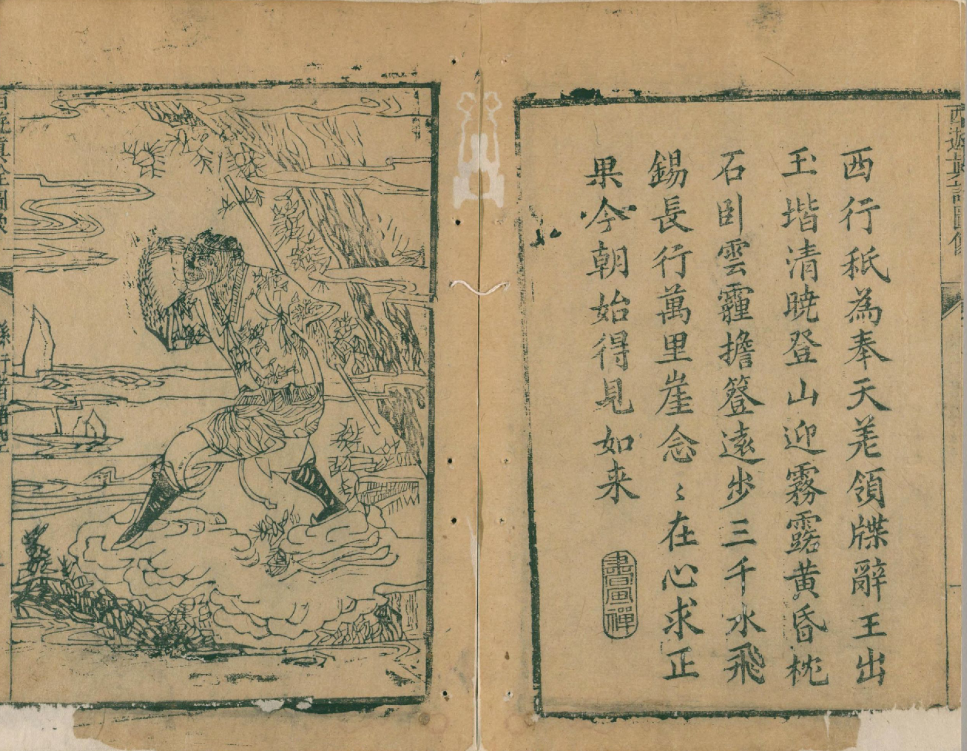 西遊真詮圖像
西行秪為奉天差領牒辭王出
玉堦清曉登山迎霧露黄昏枕
石卧雲霾擔簦遠步三千水飛
錫長行萬里崖念〻在心求正
果今朝始得見如来
孫行者悟空